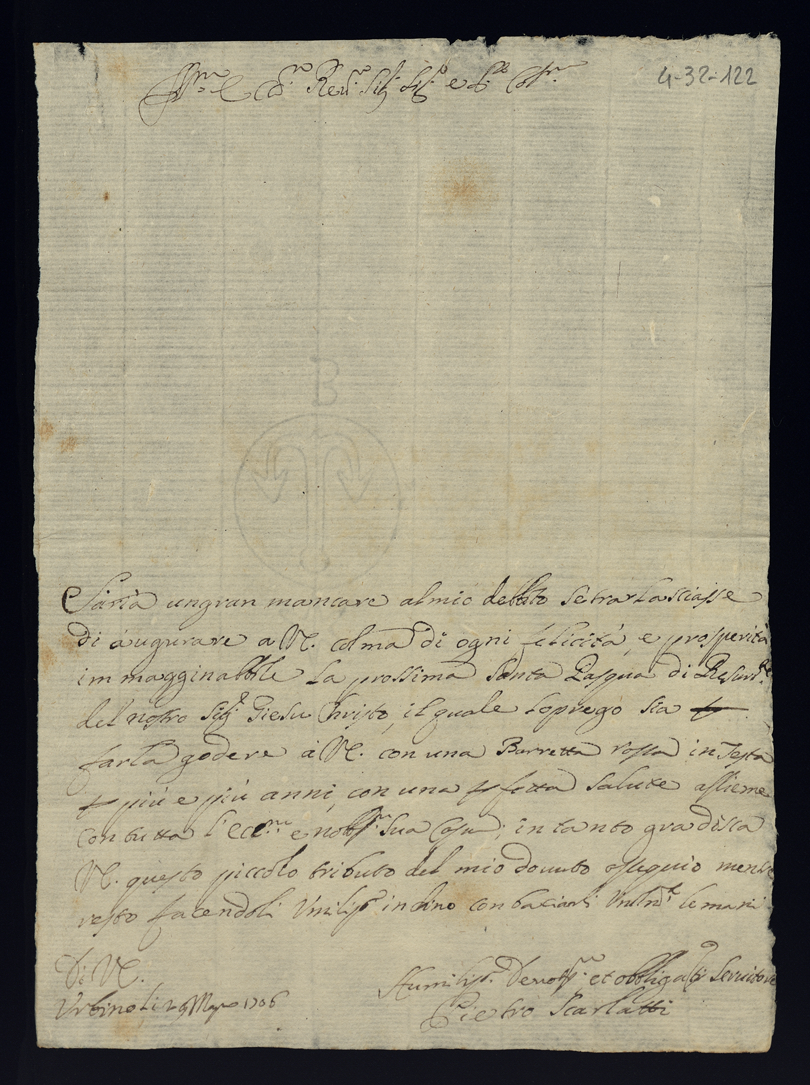 4-32-122
Ill.mo e Rev.mo Sig.r Sig.r e P.ne Col.mo
Saria un gran mancare al mio debbito se tralasciasse
di augurare a V.E. colma di ogni felicità, e prosperità
immagginabbile la prossima Santa Pasqua di Resurr.ne
del nostro Sig.r Giesu Christo, il quale lo prego sia p
farla godere à V.E. con una Barretta rossa in Testa
p più e più anni, con una pfetta salute assieme
con tutta l'ecc.ma e nobb.ma Sua Casa; in tanto gradisca
V.E. questo piccolo tributo del mio dovuto ossequio mentre
resto facendoli Umiliss.o inchino con baciarli le mani
Di V.E.
Urbino li 29 Marzo 1706
Humiliss.o Devotiss.mo et obbligat.mo Servitore
Pietro Scarlatti
B